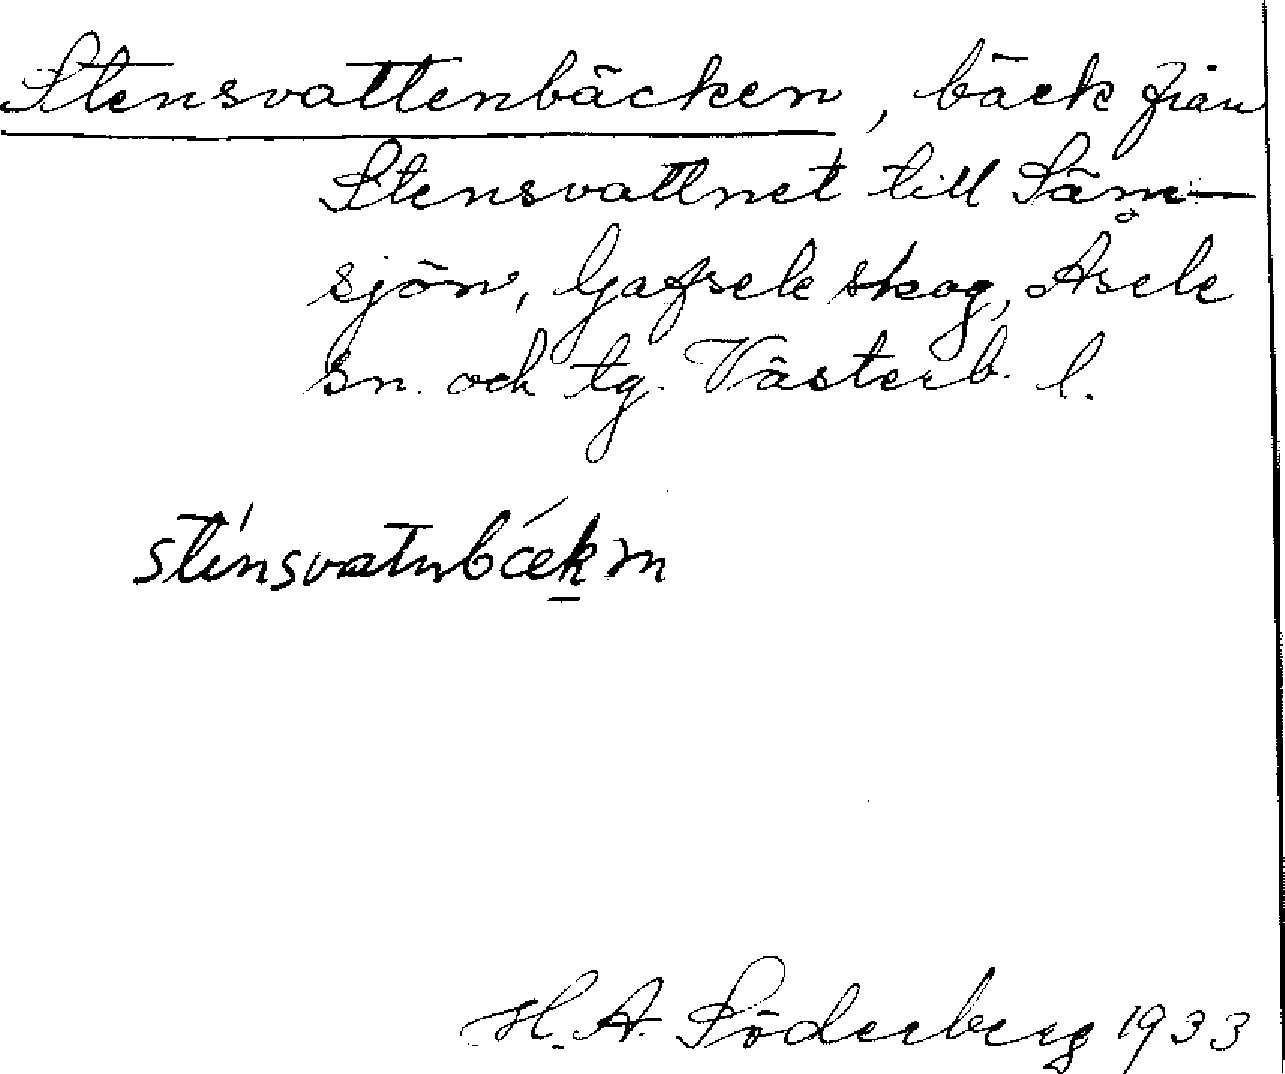 Stensvattenbäcken, bäck från
Stensvattnet till Säm-
sjön, Gafsele skog, Åsele
sn. och tg. Västerb. l.
stinsvatnbækm
H. A. Söderberg 1933